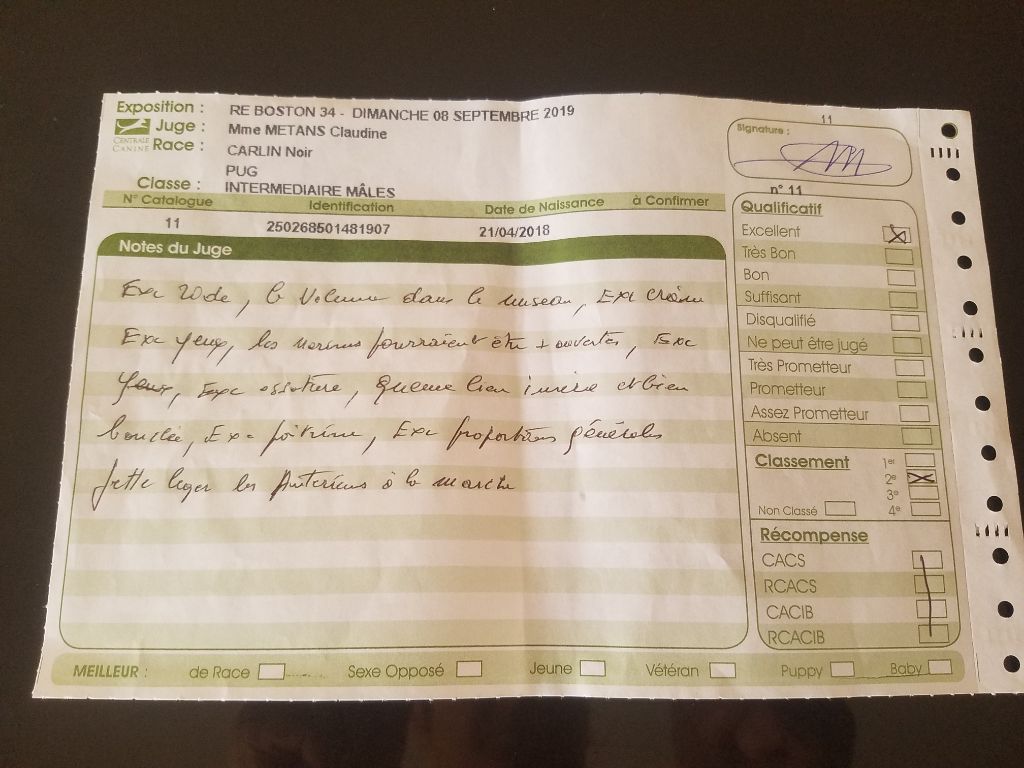 Exposition : RE BOSTON 34 - DIMANCHE 08 SEPTEMBRE 2019
Juge : Mme METANS Claudine
CENTRALE CANINE
Race : CARLIN Noir
PUG
Classe : INTERMEDIAIRE MÂLES
11
Signature :
n° 11
N° Catalogue Identification Date de Naissance à Confirmer
11 250268501481907 21/04/2018
Notes du Juge
Exc, le Volume dans le museau, Exc crâne
Exc yeux, les narines pourraient être + ouvertes, Exc
Exc ossature, queue bien insérée et bien
bouclée, Exc poitrine, Exc proportions générales
jette léger les Antérieurs à la marche
Qualificatif
Excellent
Très Bon
Bon
Suffisant
Disqualifié
Ne peut être jugé
Très Prometteur
Prometteur
Assez Prometteur
Absent
Classement
1er
2e
3e
Non Classé 4e
Récompense
CACS
RCACS
CACIB
RCACIB
MEILLEUR : de Race Sexe Opposé Jeune Vétéran Puppy Baby